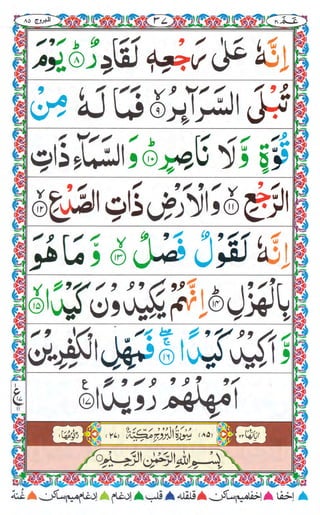 عمّ ٣٠ ٣٧ البروج ٨٥
اِنَّهٗ عَلٰى رَجْعِهٖ لَقَادِرٌ ۝٨ يَوْمَ
تُبْلَى السَّرَآئِرُ ۝٩ فَمَا لَهٗ مِنْ
قُوَّةٍ وَّلَا نَاصِرٍ ۝١٠ وَالسَّمَآءِ ذَاتِ
الرَّجْعِ ۝١١ وَالْاَرْضِ ذَاتِ الصَّدْعِ ۝١٢
اِنَّهٗ لَقَوْلٌ فَصْلٌ ۝١٣ وَّ مَا هُوَ
بِالْهَزْلِ ۝١٤ اِنَّهُمْ يَكِيْدُوْنَ كَيْدًا ۝١٥
وَّ اَكِيْدُ كَيْدًا ۝١٦ فَمَهِّلِ الْكٰفِرِيْنَ
اَمْهِلْهُمْ رُوَيْدًا ۝١٧
اٰيَاتُهَا ٢٢ (٨٥) سُوْرَةُ الْبُرُوْجِ مَكِّيَّةٌ (٢٧) رُكُوْعُهَا ١
بِسْمِ اللّٰهِ الرَّحْمٰنِ الرَّحِيْمِ
اخفا اخفامیم ساکن قلقلہ قلب ادغام ادغام میم ساکن غنہ